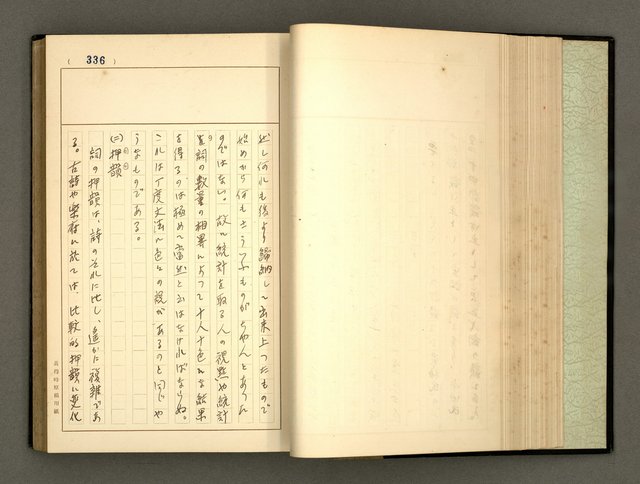 ( 336 )
然し何れも後より歸納して出來上つたもので
始めから何もさう云ふものがちやんとあつた
のではない。故に統計を取る人の視點や統計
詞の數量の相異によつて十人十色な結果
を得るのは極めて當然と云はなければならぬ。
これは丁度文法に色々の説があるのと同じや
うなものである。
(二)押韻
詞の押韻は、詩のそれに比し、遙かに複雜であ
る。古詩や樂府に於ては、比較的押韻に變化
原稿用紙